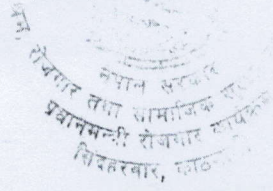 नेपाल सरकार
रोजगार तथा सामाजिक
प्रधानमन्त्री रोजगार कार्यक्रम
सिंहदरबार,